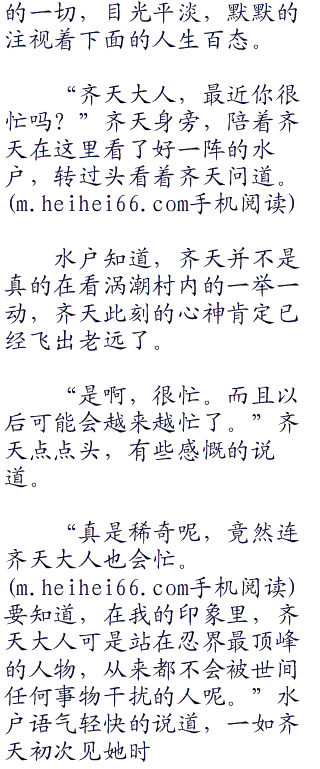 的一切，目光平淡，默默的
注视着下面的人生百态。
“齐天大人，最近你很
忙吗？”齐天身旁，陪着齐
天在这里看了好一阵的水
户，转过头看着齐天问道。
(m.heihei66.com手机阅读)
水户知道，齐天并不是
真的在看涡潮村内的一举一
动，齐天此刻的心神肯定已
经飞出老远了。
“是啊，很忙。而且以
后可能会越来越忙了。”齐
天点点头，有些感慨的说
道。
“真是稀奇呢，竟然连
齐天大人也会忙。
(m.heihei66.com手机阅读)
要知道，在我的印象里，齐
天大人可是站在忍界最顶峰
的人物，从来都不会被世间
任何事物干扰的人呢。”水
户语气轻快的说道，一如齐
天初次见她时